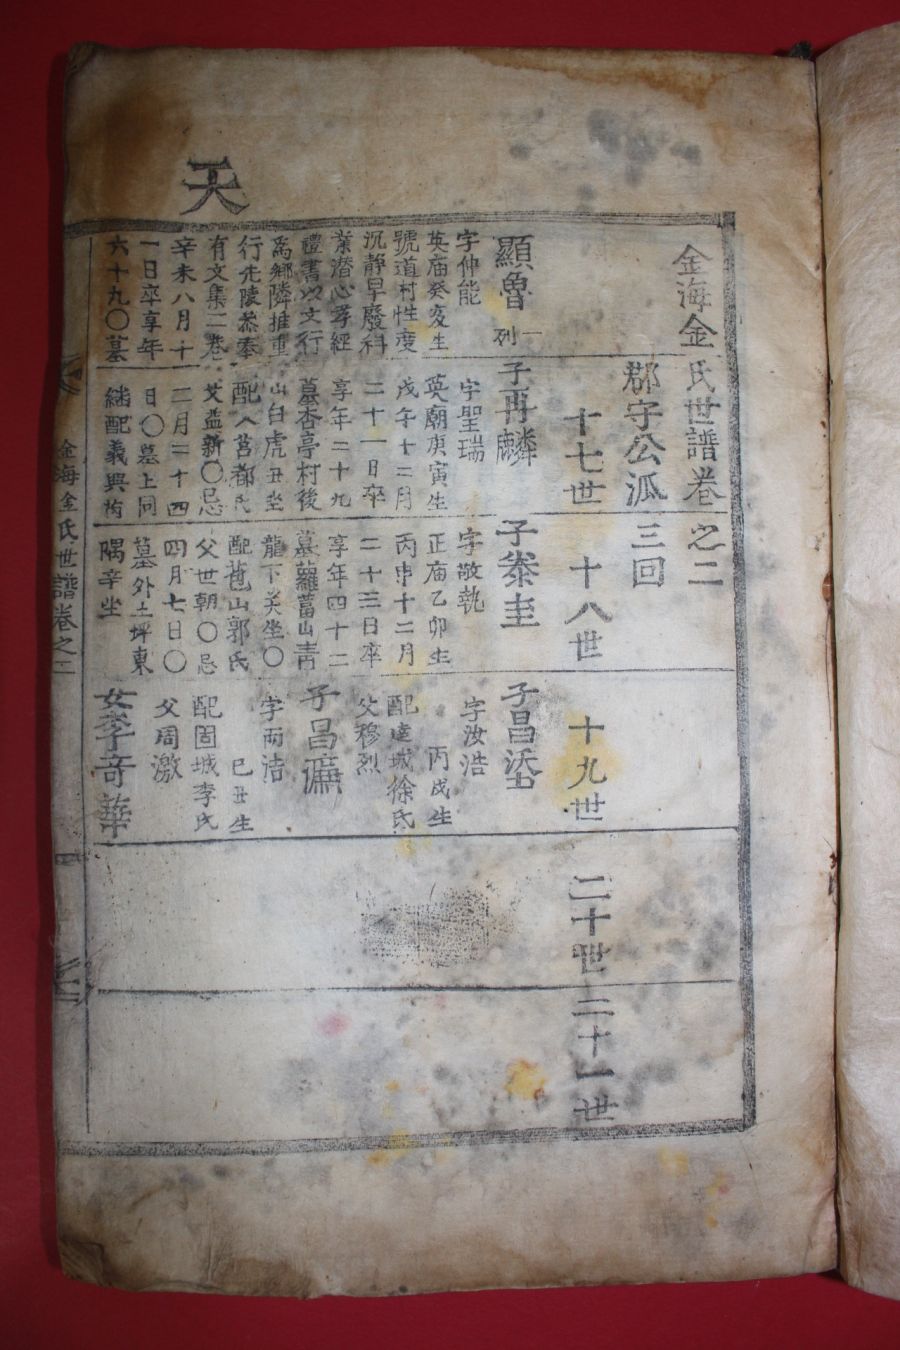 天
金海金氏世譜卷之二
郡守公派三回
十七世
十八世
十九世
二十世
二十一世
顯魯
一列
字仲能
英庙癸亥生
號道村性度
沉静早廢科
業潜心莩經
禮書以文行
爲鄉隣推重
行光陵叅奉
有文集二卷
辛未八月十
一日卒享年
六十九〇墓
子再麟
字聖瑞
英廟庚寅生
戊午十二月
二十一日卒
享年二十九
墓杏亭村後
山白虎丑坐
配八莒都氏
父益新〇忌
二月二十四
日〇墓上同
継配義興
子泰圭
字敬執
正庙乙卯生
丙申十二月
二十三日卒
享年四十二
墓蘿葍山青
龍下癸坐〇
配苞山郭氏
父世朝〇忌
四月七日〇
墓外土坪東
隅辛坐
子昌
字汝浩
丙戌生
配達城徐氏
父穆烈
子昌
字雨洁
己丑生
配固城李氏
父周激
女李奇華
金海金氏世譜卷之二